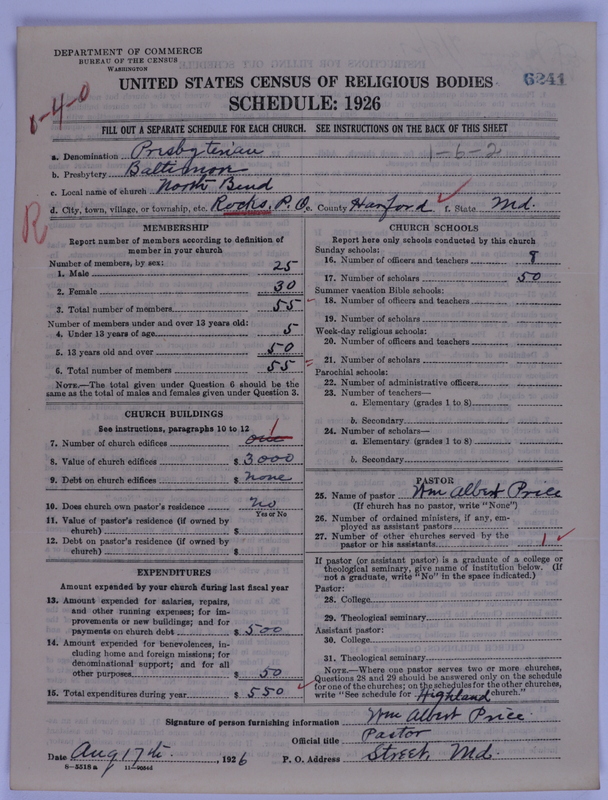 DEPARTMENT OF COMMERCE
BUREAU OF THE CENSUS
WASHINGTON
UNITED STATES CENSUS OF RELIGIOUS BODIES
6241
SCHEDULE: 1926
0-4-0
FILL OUT A SEPARATE SCHEDULE FOR EACH CHURCH. SEE INSTRUCTIONS ON THE BACK OF THIS SHEET
a. Denomination Presbyterian
1-6-2
b. Presbytery Baltimore
c. Local name of church North Bend
d. City, town, village, or township, etc. Rocks, P.O. e. County Harford f. State Md.
R
MEMBERSHIP
Report number of members according to definition of
member in your church
Number of members, by sex:
1. Male 25
2. Female 30
3. Total number of members 55
Number of members under and over 13 years old:
4. Under 13 years of age 5
5. 13 years old and over 50
6. Total number of members 55
NOTE.—The total given under Question 6 should be the
same as the total of males and females given under Question 3.
CHURCH BUILDINGS
See instructions, paragraphs 10 to 12
7. Number of church edifices one 1
8. Value of church edifices $ 3000
9. Debt on church edifices $ none
10. Does church own pastor's residence no
Yes or No
11. Value of pastor's residence (if owned by
church) $
12. Debt on pastor's residence (if owned by
church) $
EXPENDITURES
Amount expended by your church during last fiscal year
13. Amount expended for salaries, repairs,
and other running expenses; for im-
provements or new buildings; and for
payments on church debt $ 500
14. Amount expended for benevolences, in-
cluding home and foreign missions; for
denominational support; and for all
other purposes $ 50
15. Total expenditures during year $ 550
CHURCH SCHOOLS
Report here only schools conducted by this church
Sunday schools:
16. Number of officers and teachers 8
17. Number of scholars 50
Summer vacation Bible schools:
18. Number of officers and teachers
19. Number of scholars
Week-day religious schools:
20. Number of officers and teachers
21. Number of scholars
Parochial schools:
22. Number of administrative officers
23. Number of teachers—
a. Elementary (grades 1 to 8)
b. Secondary
24. Number of scholars—
a. Elementary (grades 1 to 8)
b. Secondary
PASTOR
25. Name of pastor Wm Albert Price
(If church has no pastor, write "None")
26. Number of ordained ministers, if any, em-
ployed as assistant pastors
27. Number of other churches served by the
pastor or his assistants 1
If pastor (or assistant pastor) is a graduate of a college or
theological seminary, give name of institution below. (If
not a graduate, write "No" in the space indicated.)
Pastor:
28. College
29. Theological seminary
Assistant pastor:
30. College
31. Theological seminary
NOTE.—Where one pastor serves two or more churches,
Questions 28 and 29 should be answered only on the schedule
for one of the churches; on the schedules for the other churches,
write "See schedule for Highland church."
Signature of person furnishing information Wm Albert Price.
Official title Pastor
Date Aug 17th, 1926 P. O. Address Street, Md.
8-5518 a